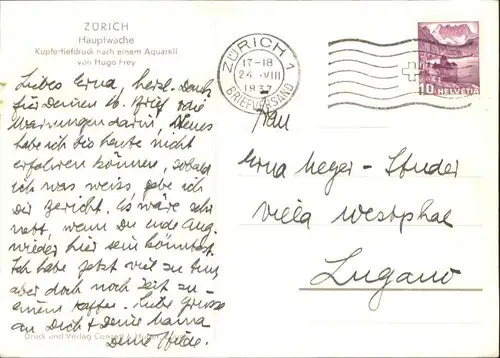 ZÜRICH
Hauptwache
Kupfertiefdruck nach einem Aquarell
von Hugo Frey
ZÜRICH 1
17-18
24. VIII
1937
BRIEFVERSAND
10 HELVETIA
Liebes Erna, herzl. Dank
für Deinen lb. Brief und
Warnungen darin, Neues
habe ich bis heute nicht
erfahren können, sobald
ich was weiss, gebe ich
Dir Bericht. Es wäre sehr
nett, wenn Du ende Aug.
wieder hier sein könntest.
Ich habe jetzt viel zu tun,
aber doch noch Zeit zu
einem Kaffee. Liebe Grüsse
an Dich + Deine Mama
Deine Hilde.
Frau
Erna Meyer-Studer
Villa Westphal
Lugano
Druck und Verlag